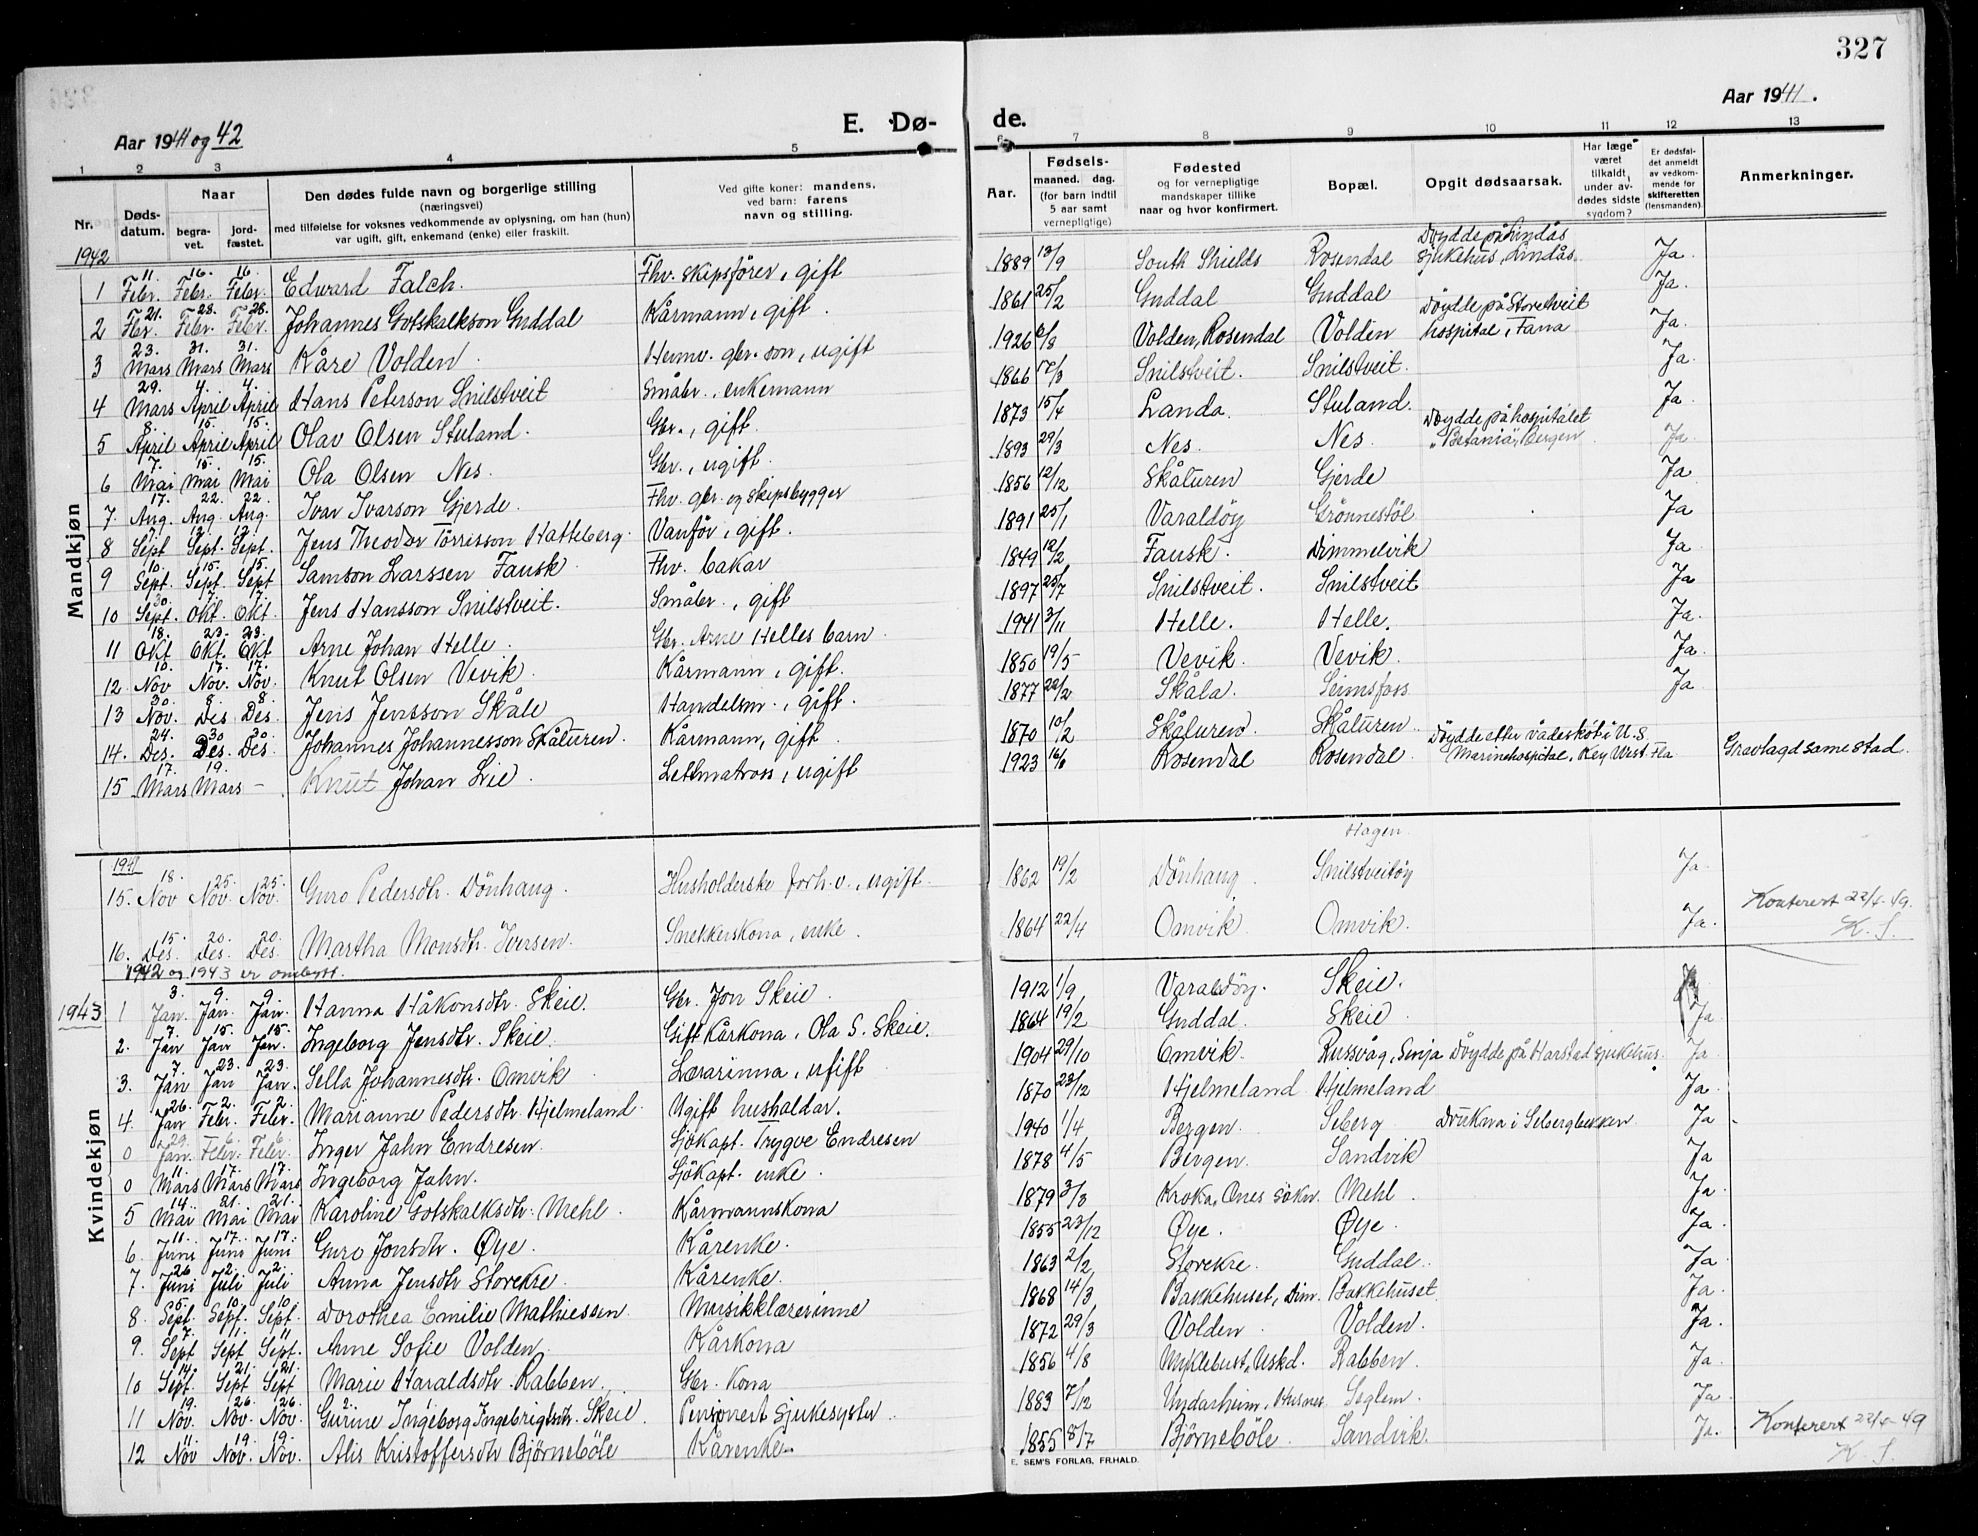 327
Aar 1941 og 42
E. Dø-
de.
Aar 1941.
1 2 3 4 5 6 7 8 9 10 11 12 13
Nr. Døds-datum. Naar begra-vet. jord-fæstet. Den dødes fulde navn og borgerlige stilling (næringsvei) med tilføielse for voksnes vedkommende av oplysning, om han (hun) var ugift, gift, enkemand (enke) eller fraskilt. Ved gifte koner: mandens, ved barn: farens navn og stilling. Aar. Fødsels- maaned. dag. (for barn indtil 5 aar samt vernepligtige) Fødested og for vernepligtige mandskaper tillike naar og hvor konfirmert. Bopæl. Opgit dødsaarsak. Har læge været tilkaldt under av-dødes sidste sygdom? Er dødsfal-det anmeldt av vedkom-mende for skifteretten (lensmanden). Anmerkninger.
1942
Mandkjøn
1 11. Febr. 16. Febr. 16. Febr. Edward Falch. Fhv. skipsfører, gift 1889 13/9 South Shields Rosendal Døydde på Lindås sjukehus, Lindås. Ja.
2 21. Febr. 28. Febr. 28. Febr. Johannes Gotskalkson Guddal Kårmann, gift. 1861 25/2 Guddal Guddal Ja.
3 23. Mars 31. Mars 31. Mars Kåre Volden. Heimv. gbr. son, ugift 1926 6/8 Volden, Rosendal Volden Døydde på Storetveit hospital, Fana Ja.
4 29. Mars 4. April 4. April Hans Peterson Snilstveit Småbr., enkemann 1866 17/3 Snilstveit. Snilstveit. Ja.
5 8. April 15. April 15. April Olav Olsen Stuland. Gbr., gift. 1873 15/4 Landa. Stuland. Ja.
6 7. Mai 15. Mai 15. Mai Ola Olsen Nes. Gbr., ugift. 1893 29/3 Nes. Nes. Døydde på hospitalet "Betania", Bergen Ja
7. 17. Aug. 22. Aug. 22. Aug. Ivar Ivarson Gjerde. Fhv. gbr. og skipsbygger 1856 12/12 Skåluren Gjerde Ja
8 7. Sept 12. Sept. 12. Sept. Jens Theodor Torrisson Hatteberg. Vanför, gift. 1891 25/1 Varaldöy Grönnestöl Ja
9 10. Sept. 15. Sept. 15. Sept Samson Larssen Fausk. Fhv. bakar 1849 12/2 Fausk. Dimmelvik Ja
10 30. Sept. 7. Okt. 7. Okt. Jens Hansson Snilstveit. Småbr., gift 1897 25/7 Snilstveit. Snilstveit Ja
11 18. Okt 23. Okt. 23. Okt Arne Johan Helle. Gbr. Arne Helles barn. 1941 3/11 Helle. Helle. Ja.
12. 10. Nov 17. Nov. 17. Nov. Knut Olsen Vevik. Kårmann, gift. 1850 19/5 Vevik. Vevik. Ja.
13 30. Nov. 8. Des 8. Des. Jens Jensson Skåle Handelsm., gift. 1877 22/2 Skåla. Seimsfoss Ja
14. 24. Des. 30 Des. 30. Des. Johannes Johannesson Skåluren. Kårmann, gift. 1870 10/2 Skåluren. Skåluren.
15 17. Mars 19. Mars – Knut Johan Lie. Lettmatros, ugift 1923 16/6 Rosendal Rosendal. Døydde etter vådeskot i U.S. Marinehospital, Key West Fla Gravlagd same stad.
Kvindekjøn
1941
15. 18. Nov 25. Nov. 25. Nov. Guro Pedersdtr. Dönhaug. Husholderske forh. v., ugift. 1862 19/2 Dönhaug. Hagen Snilstveitöy Ja.
16. 15. Des. 20. Des. 20. Des. Martha Monsdtr. Iversen. Snekkerskona, enke. 1864 22/4 Omvik. Omvik. Ja. Konferert 22/6-49. K. S.
1942 og 1943 er ombytt.
1943
1 3. Jan. 9. Jan. 9. Jan. Hanna Håkonsdtr. Skeie. Gbr. Jon Skeie. 1912 1/9 Varaldöy. Skeie. Ja
2. 7. Jan 15. Jan 15. Jan. Ingeborg Jensdtr. Skeie. Gift kårkona, Ola S. Skeie. 1864 19/2 Guddal. Skeie Ja
3. 7. Jan 23. Jan 23. Jan. Sella Johannesdtr. Omvik Lærarinna, ugift. 1904 29/10 Omvik. Russvåg, Senja Døydde på Harstad sjukehus. Ja
4. 26. Jan 2. Febr. 2. Febr. Marianne Pedersdtr. Hjelmeland. Ugift husholdar. 1870 23/12 Hjelmeland Hjelmeland Ja
0 29. Jan. 6. Febr. 6. Febr. Inger Jahn Endresen. Sjökapt. Trygve Endresen 1940 1/4 Bergen. Seberg Drukna i Sebergbekken Ja
0 11. Mars 17. Mars 17. Mars Ingeborg Jahn. Sjökapt. enke. 1878 4/5 Bergen. Sandvik Ja
5 14. Mai 21. Mai 21. Mai Karoline Gotskalksdtr. Mehl. Kårmannskona 1879 3/8 Kroka, Ones sokn Mehl. Ja.
6. 11. Juni 17. Juni 17. Juni Guro Jonsdtr. Øye. Kårenke. 1855 23/12 Øye. Øye. Ja.
7. 26 Juni 2. Juli 2. Juli Anna Jensdtr Storekre. Kårenke. 1863 2/2 Storekre. Guddal. Ja
8. 5. Sept. 10. Sept. 10 Sept. Dorothea Emilie Mathiessen. Musikklærerinne 1868 14/3 Bakkehuset, Dim. Bakkehuset Ja.
9. 7. Sept 11. Sept 11 Sept. Anne Sofie Volden. Kårkona 1872 29/3 Volden. Volden. Ja.
10 14. Sept. 21. Sept 21. Sept Marie Haraldsdtr. Rabben. Gbr. kona 1856 4/8 Myklebust, Uskd. Rabben. Ja.
11 19. Nov. 26. Nov. 26. Nov. Gurine Ingeborg Ingebrigtsdtr. Skeie. Pensjonert sjukesyster. 1883 7/12 Undarheim, Husnes Seglem. Ja
12 11. Nov 19. Nov. 19. Nov. Alis Kristoffersdtr Bjørnebøle Kårenke. 1855 8/7 Bjørnebøle. Sandvik. Ja. Konferert 22/6-49 K. S.
E. SEM'S FORLAG, FR.HALD.